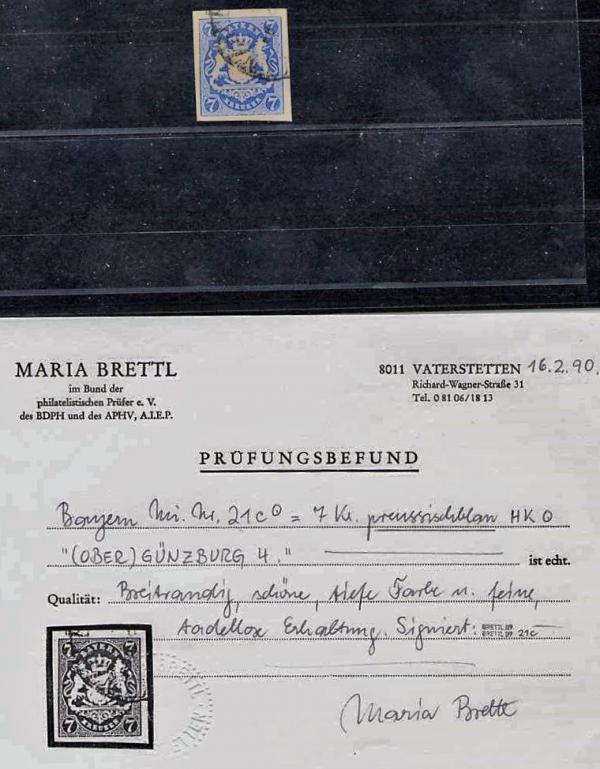 7 BAYERN 7
7 KREUZER 7
MARIA BRETTL
im Bund der
philatelistischen Prüfer e. V.
des BDPH und des APHV, A.I.E.P.
8011 VATERSTETTEN 16.2.90.
Richard-Wagner-Straße 31
Tel. 0 81 06/18 13
PRÜFUNGSBEFUND
Bayern Mi. Nr. 21c⊙ = 7 Kr. preussischblau HKO
"(OBER)GÜNZBURG 4." ist echt.
Qualität: Breitrandig, schöne, tiefe Farbe u. feine,
tadellose Erhaltung. Signiert: BRETTL 21c
7 BAYERN 7
7 KREUZER 7
Maria Brettl